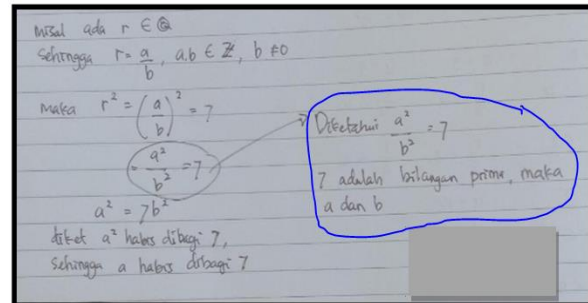 misal ada r ∈ ℚ
Sehingga r = a/b, a.b ∈ ℤ, b ≠ 0
Maka r² = (a/b)² = 7
= a²/b² = 7
a² = 7b²
diket a² habis dibagi 7,
Sehingga a habis dibagi 7
Diketahui a²/b² = 7
7 adalah bilangan prima, maka
a dan b